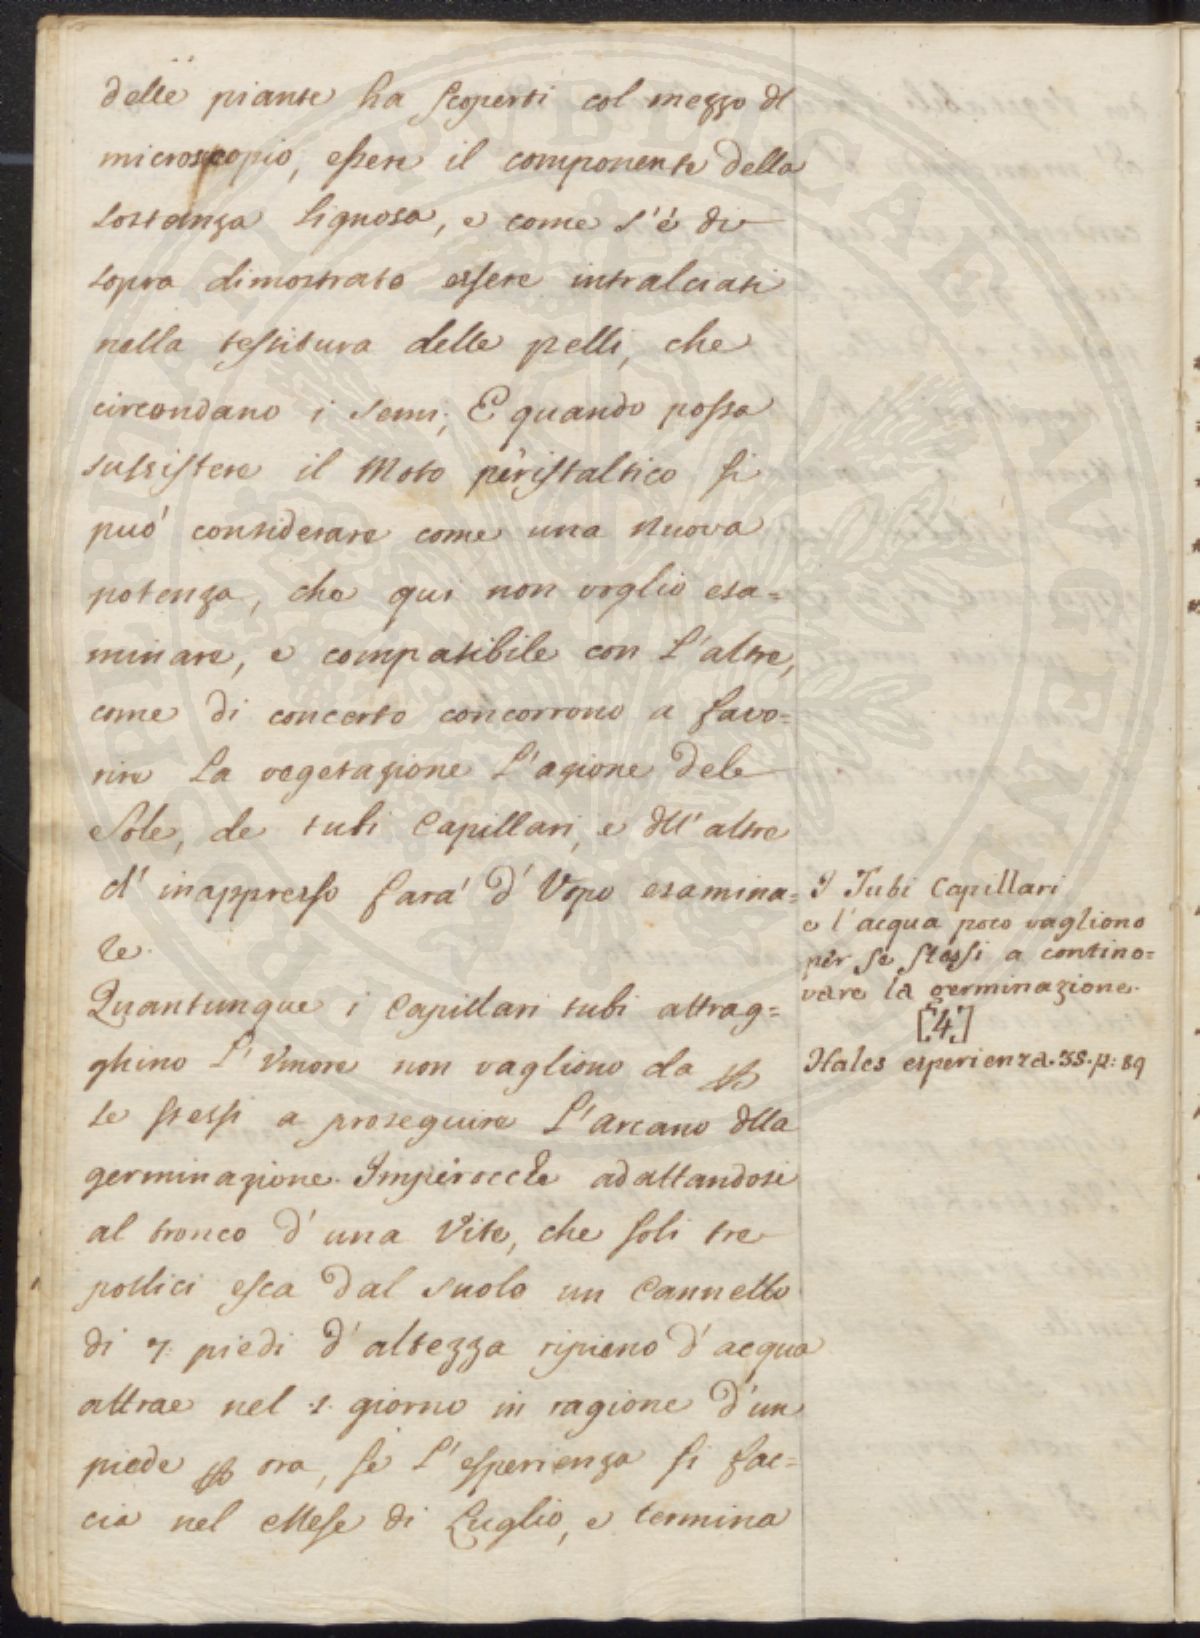 delle piante ha scoperti col mezzo dl
microscopio, essere il componente della
sostanza lignosa, e come s'é di
sopra dimostrato essere intralciati
nella tessitura delle pelli, che
circondano i semi; E quando possa
sussistere il Moto peristaltico si
può considerare come una nuova
potenza, che qui non voglio esa=
minare, e compatibile con l'altre,
come di concerto concorrono a favo=
rire la vegetazione l'azione dele
Sole, de tubi Capillari, e dll'altre
d'inappresso fara' d'Vopo esamina=
re.
Quantunque i Capillari tubi attrag=
ghino l'Vmore non vagliono da
se stessi a proseguire l'arcano dlla
germinazione. Imperocche adattandosi
al tronco d'una Vite, che soli tre
pollici esca dal suolo un Cannello
di 7. piedi d'altezza ripieno d'acqua
attrae nel .1. giorno in ragione d'un
piede ora, se l'esperienza si fac=
cia nel Mese di Luglio, e termina
I Tubi Capillari
e l'acqua poco vagliono
per se stessi a contino=
vare la germinazione.
[4]
Hales esperienza. 35. p: 89
PUBLICAE